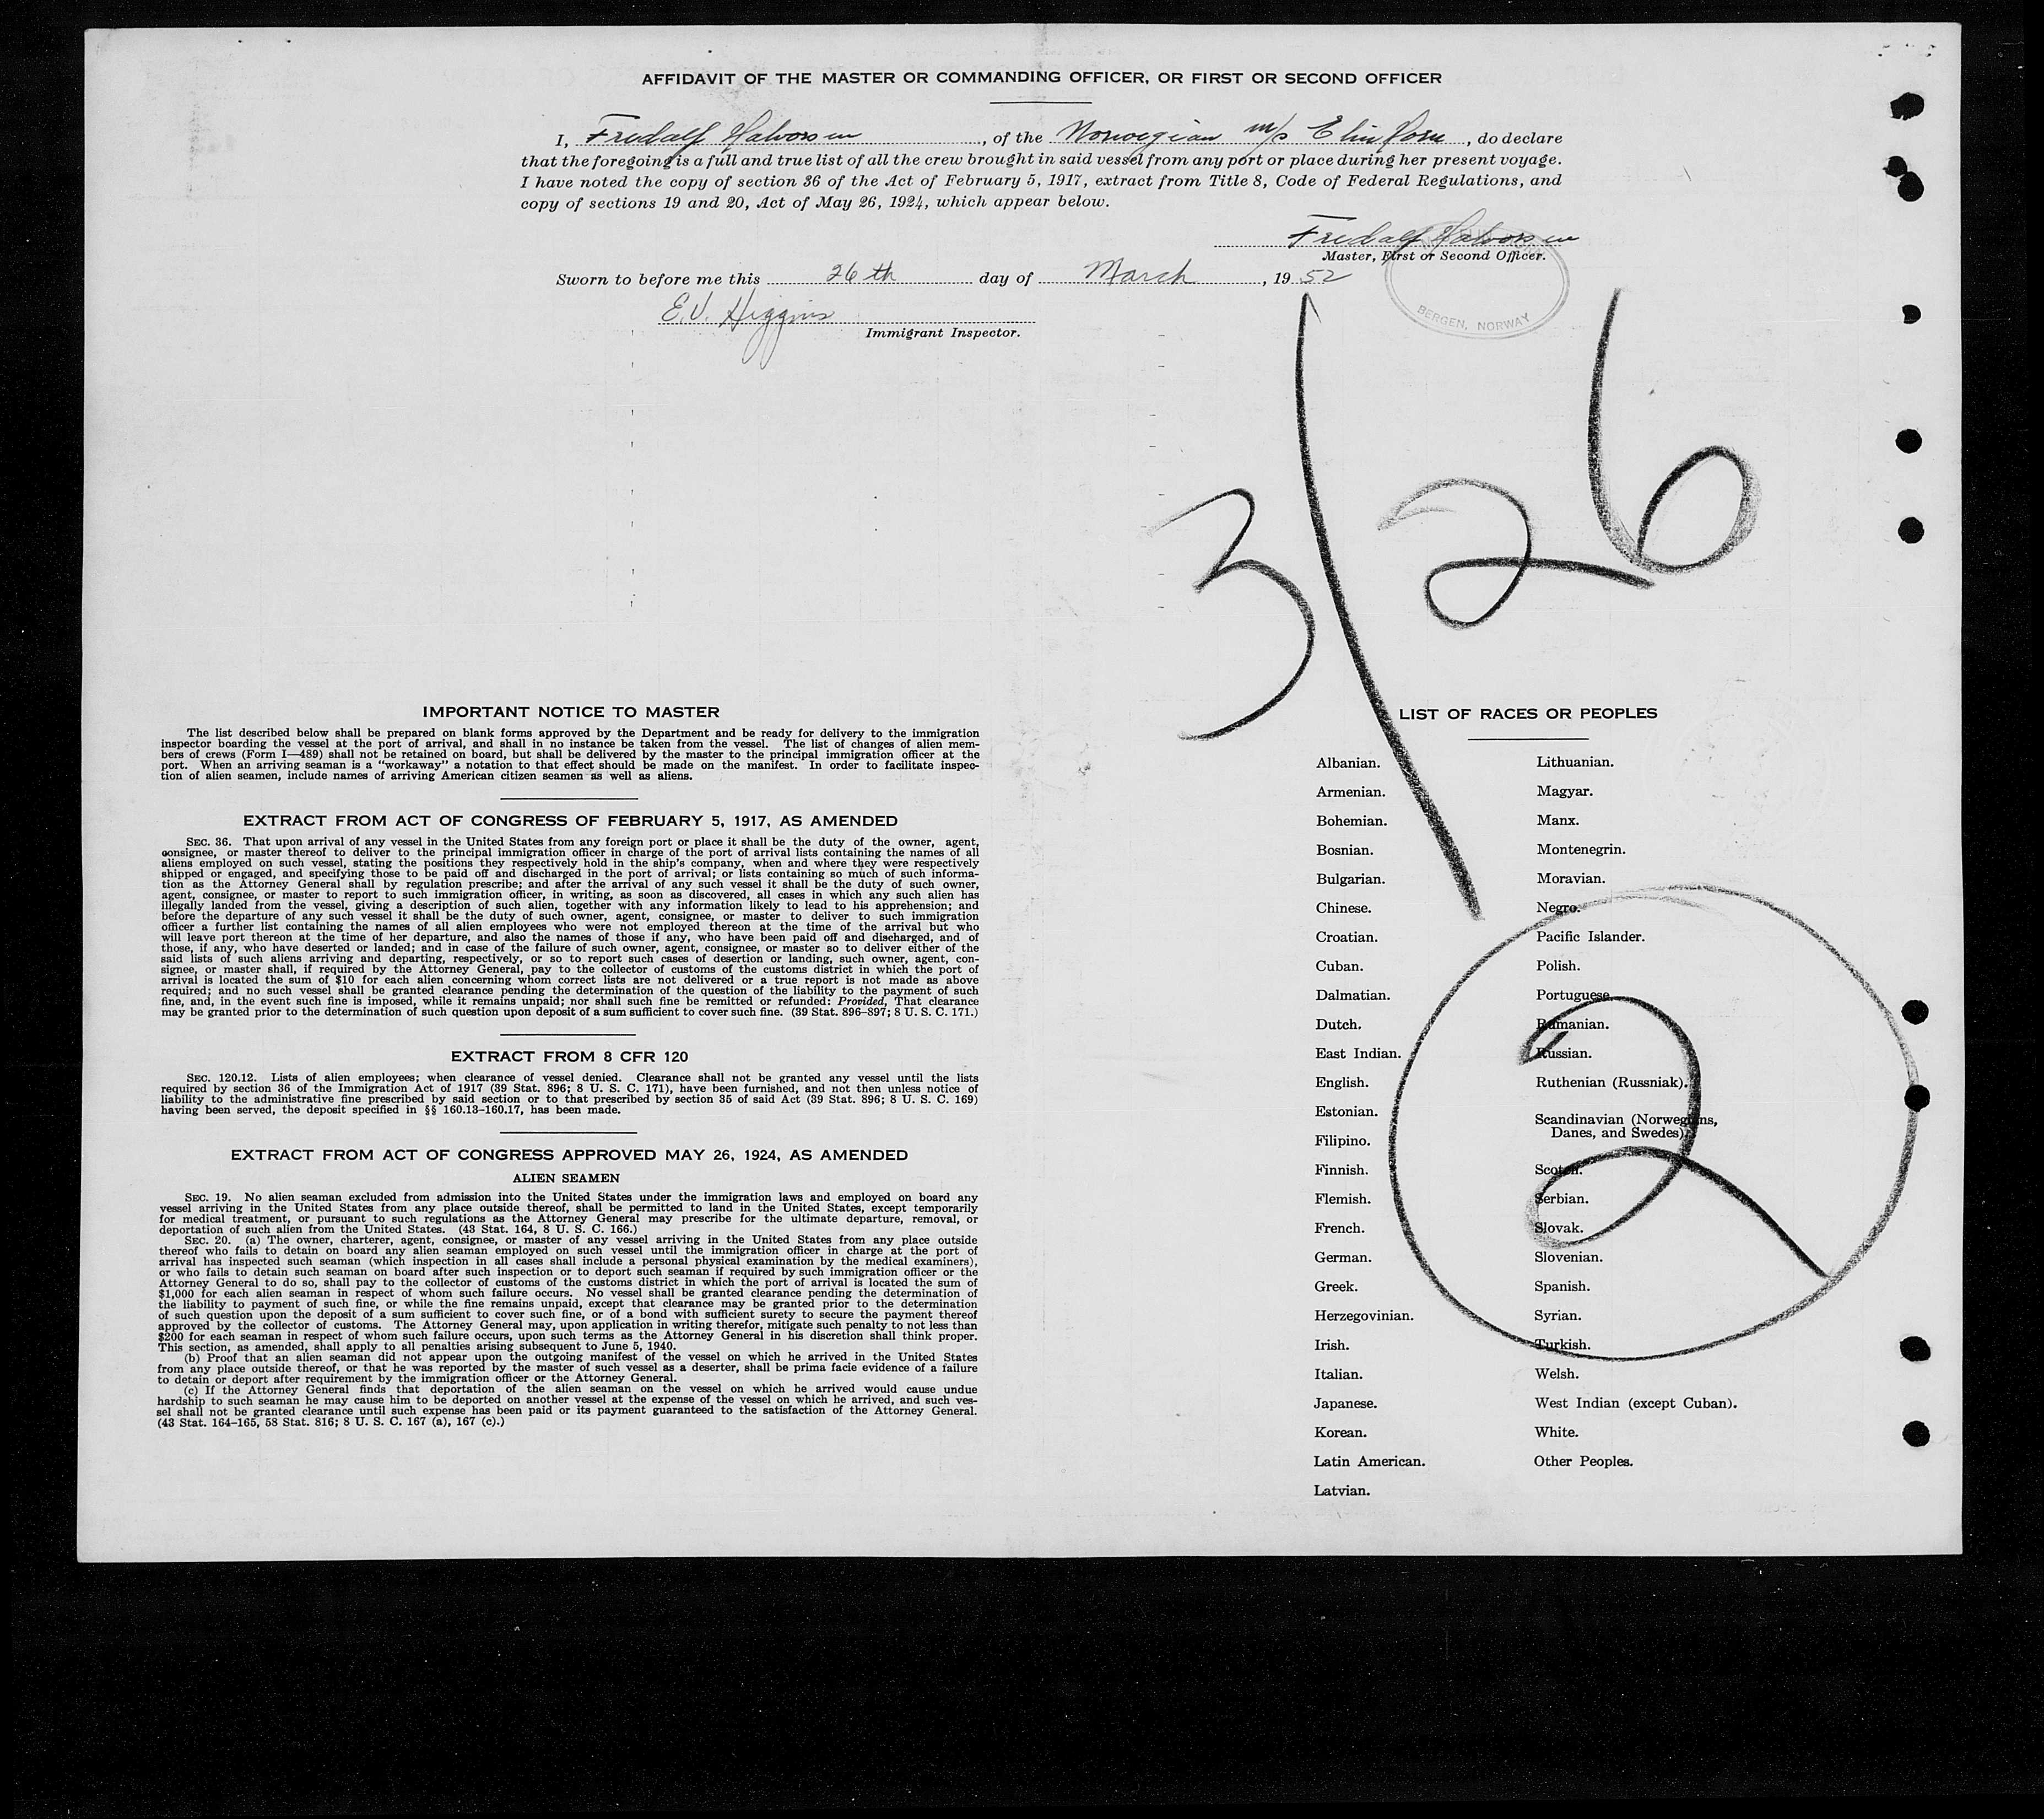 AFFIDAVIT OF THE MASTER OR COMMANDING OFFICER, OR FIRST OR SECOND OFFICER
I, Fredalf Halvorsen, of the Norwegian m/s Elin Horn, do declare
that the foregoing is a full and true list of all the crew brought in said vessel from any port or place during her present voyage.
I have noted the copy of section 36 of the Act of February 5, 1917, extract from Title 8, Code of Federal Regulations, and
copy of sections 19 and 20, Act of May 26, 1924, which appear below.
Fredalf Halvorsen
Master, First or Second Officer.
Sworn to before me this 26th day of March, 1952
E.V. Higgins
Immigrant Inspector.
BERGEN, NORWAY
3/26
IMPORTANT NOTICE TO MASTER
The list described below shall be prepared on blank forms approved by the Department and be ready for delivery to the immigration
inspector boarding the vessel at the port of arrival, and shall in no instance be taken from the vessel. The list of changes of alien mem-
bers of crews (Form I—489) shall not be retained on board, but shall be delivered by the master to the principal immigration officer at the
port. When an arriving seaman is a "workaway" a notation to that effect should be made on the manifest. In order to facilitate inspec-
tion of alien seamen, include names of arriving American citizen seamen as well as aliens.
EXTRACT FROM ACT OF CONGRESS OF FEBRUARY 5, 1917, AS AMENDED
SEC. 36. That upon arrival of any vessel in the United States from any foreign port or place it shall be the duty of the owner, agent,
consignee, or master thereof to deliver to the principal immigration officer in charge of the port of arrival lists containing the names of all
aliens employed on such vessel, stating the positions they respectively hold in the ship's company, when and where they were respectively
shipped or engaged, and specifying those to be paid off and discharged in the port of arrival; or lists containing so much of such informa-
tion as the Attorney General shall by regulation prescribe; and after the arrival of any such vessel it shall be the duty of such owner,
agent, consignee, or master to report to such immigration officer, in writing, as soon as discovered, all cases in which any such alien has
illegally landed from the vessel, giving a description of such alien, together with any information likely to lead to his apprehension; and
before the departure of any such vessel it shall be the duty of such owner, agent, consignee, or master to deliver to such immigration
officer a further list containing the names of all alien employees who were not employed thereon at the time of the arrival but who
will leave port thereon at the time of her departure, and also the names of those if any, who have been paid off and discharged, and of
those, if any, who have deserted or landed; and in case of the failure of such owner, agent, consignee, or master so to deliver either of the
said lists of such aliens arriving and departing, respectively, or so to report such cases of desertion or landing, such owner, agent, con-
signee, or master shall, if required by the Attorney General, pay to the collector of customs of the customs district in which the port of
arrival is located the sum of $10 for each alien concerning whom correct lists are not delivered or a true report is not made as above
required; and no such vessel shall be granted clearance pending the determination of the question of the liability to the payment of such
fine, and, in the event such fine is imposed, while it remains unpaid; nor shall such fine be remitted or refunded: Provided, That clearance
may be granted prior to the determination of such question upon deposit of a sum sufficient to cover such fine. (39 Stat. 896–897; 8 U. S. C. 171.)
EXTRACT FROM 8 CFR 120
SEC. 120.12. Lists of alien employees; when clearance of vessel denied. Clearance shall not be granted any vessel until the lists
required by section 36 of the Immigration Act of 1917 (39 Stat. 896; 8 U. S. C. 171), have been furnished, and not then unless notice of
liability to the administrative fine prescribed by said section or to that prescribed by section 35 of said Act (39 Stat. 896; 8 U. S. C. 169)
having been served, the deposit specified in §§ 160.13–160.17, has been made.
EXTRACT FROM ACT OF CONGRESS APPROVED MAY 26, 1924, AS AMENDED
ALIEN SEAMEN
SEC. 19. No alien seaman excluded from admission into the United States under the immigration laws and employed on board any
vessel arriving in the United States from any place outside thereof, shall be permitted to land in the United States, except temporarily
for medical treatment, or pursuant to such regulations as the Attorney General may prescribe for the ultimate departure, removal, or
deportation of such alien from the United States. (43 Stat. 164, 8 U. S. C. 166.)
SEC. 20. (a) The owner, charterer, agent, consignee, or master of any vessel arriving in the United States from any place outside
thereof who fails to detain on board any alien seaman employed on such vessel until the immigration officer in charge at the port of
arrival has inspected such seaman (which inspection in all cases shall include a personal physical examination by the medical examiners),
or who fails to detain such seaman on board after such inspection or to deport such seaman if required by such immigration officer or the
Attorney General to do so, shall pay to the collector of customs of the customs district in which the port of arrival is located the sum of
$1,000 for each alien seaman in respect of whom such failure occurs. No vessel shall be granted clearance pending the determination of
the liability to payment of such fine, or while the fine remains unpaid, except that clearance may be granted prior to the determination
of such question upon the deposit of a sum sufficient to cover such fine, or of a bond with sufficient surety to secure the payment thereof
approved by the collector of customs. The Attorney General may, upon application in writing therefor, mitigate such penalty to not less than
$200 for each seaman in respect of whom such failure occurs, upon such terms as the Attorney General in his discretion shall think proper.
This section, as amended, shall apply to all penalties arising subsequent to June 5, 1940.
(b) Proof that an alien seaman did not appear upon the outgoing manifest of the vessel on which he arrived in the United States
from any place outside thereof, or that he was reported by the master of such vessel as a deserter, shall be prima facie evidence of a failure
to detain or deport after requirement by the immigration officer or the Attorney General.
(c) If the Attorney General finds that deportation of the alien seaman on the vessel on which he arrived would cause undue
hardship to such seaman he may cause him to be deported on another vessel at the expense of the vessel on which he arrived, and such ves-
sel shall not be granted clearance until such expense has been paid or its payment guaranteed to the satisfaction of the Attorney General.
(43 Stat. 164–165, 58 Stat. 816; 8 U. S. C. 167 (a), 167 (c).)
LIST OF RACES OR PEOPLES
Albanian.
Armenian.
Bohemian.
Bosnian.
Bulgarian.
Chinese.
Croatian.
Cuban.
Dalmatian.
Dutch.
East Indian.
English.
Estonian.
Filipino.
Finnish.
Flemish.
French.
German.
Greek.
Herzegovinian.
Irish.
Italian.
Japanese.
Korean.
Latin American.
Latvian.
Lithuanian.
Magyar.
Manx.
Montenegrin.
Moravian.
Negro.
Pacific Islander.
Polish.
Portuguese.
Rumanian.
Russian.
Ruthenian (Russniak).
Scandinavian (Norwegians,
Danes, and Swedes).
Scotch.
Serbian.
Slovak.
Slovenian.
Spanish.
Syrian.
Turkish.
Welsh.
West Indian (except Cuban).
White.
Other Peoples.
2